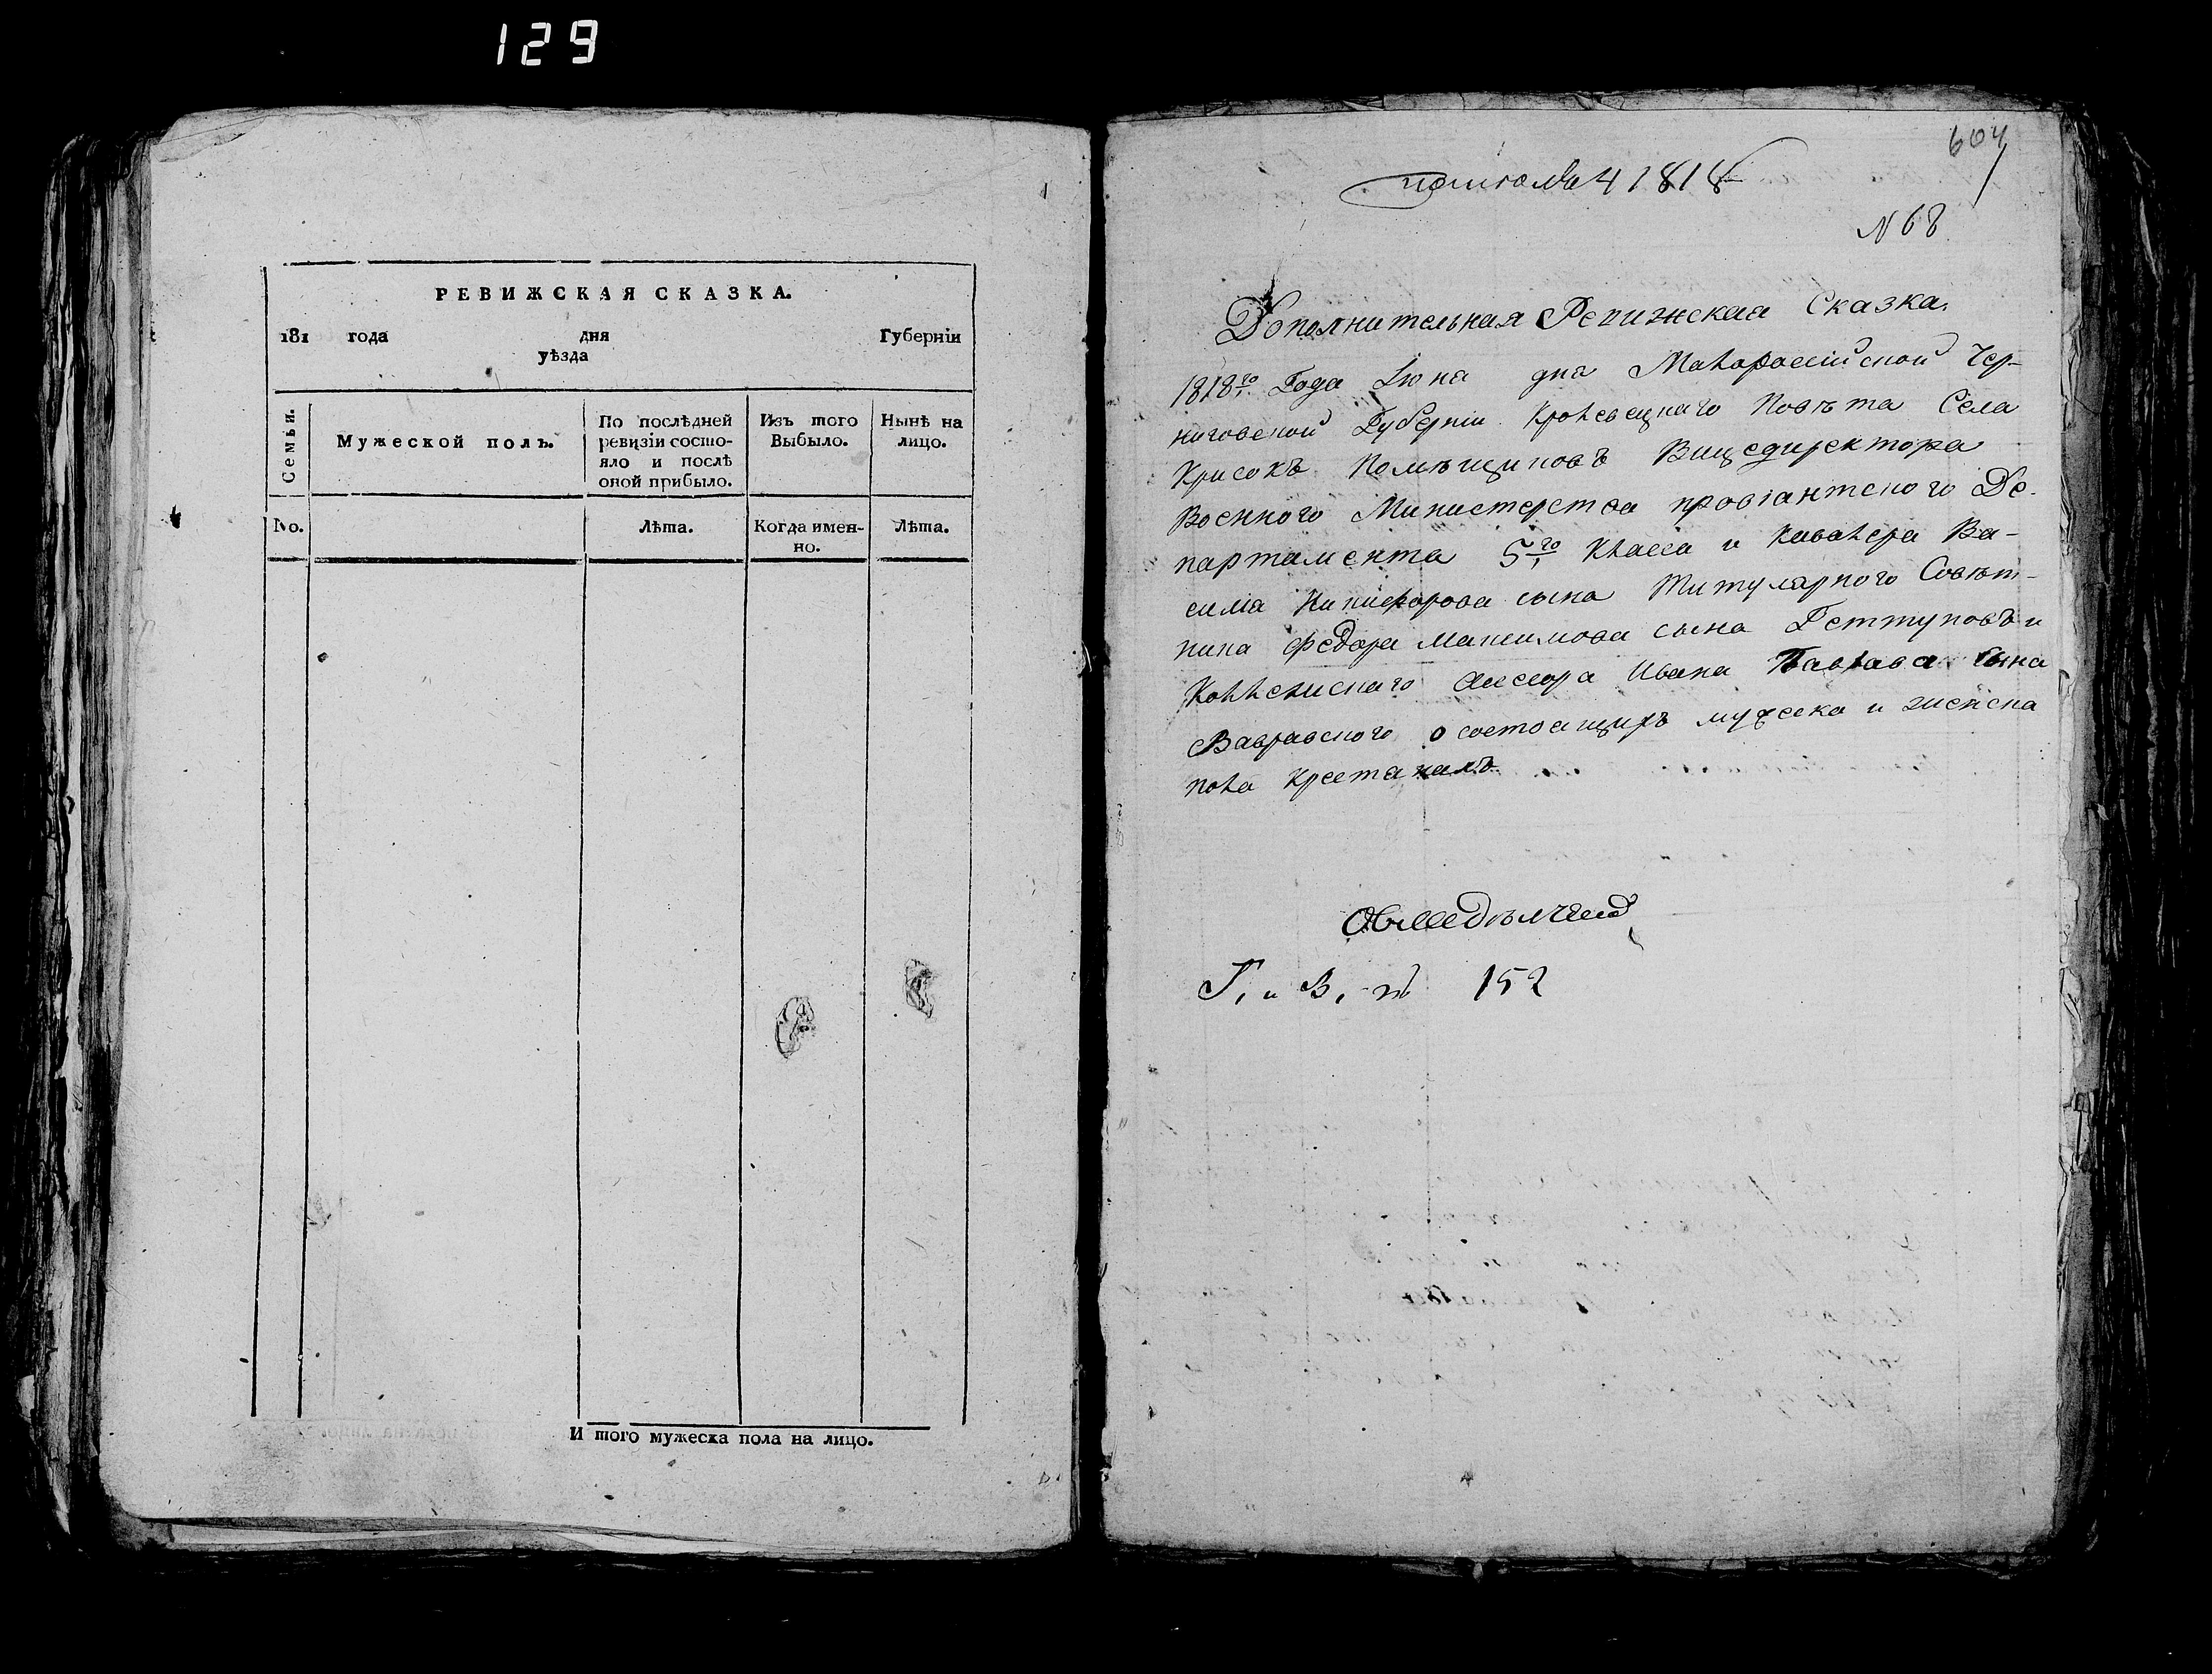 129
РЕВИЖСКАЯ СКАЗКА.
181 года дня Губерніи
уѣзда
Семьи.
Мужеской полъ.
По послѣдней
ревизіи состо-
яло и послѣ
оной прибыло.
Изъ того
Выбыло.
Нынѣ на
лицо.
No.
Лѣта.
Когда имен-
но.
Лѣта.
И того мужеска пола на лицо.
604
4 1818
N 68
Дополнительная Ревижская Сказка.
1818го Года Іюня дня Малоросссійской Чер-
ниговской Губерніи Кролевецкого Повѣта Села
Крисокъ Помѣщиковъ Вицедиректора
Военного Министерства провіантского Де-
партамента 5го Класса и Кавалера Ва-
силія Никифорова сына Титулярного Совѣт-
ника Федора Максимова сына и
Коллежского Асесора Ивана Павлова Сына
о состоящихъ мужеска и женска
пола крестянахъ
Г. и В. 152